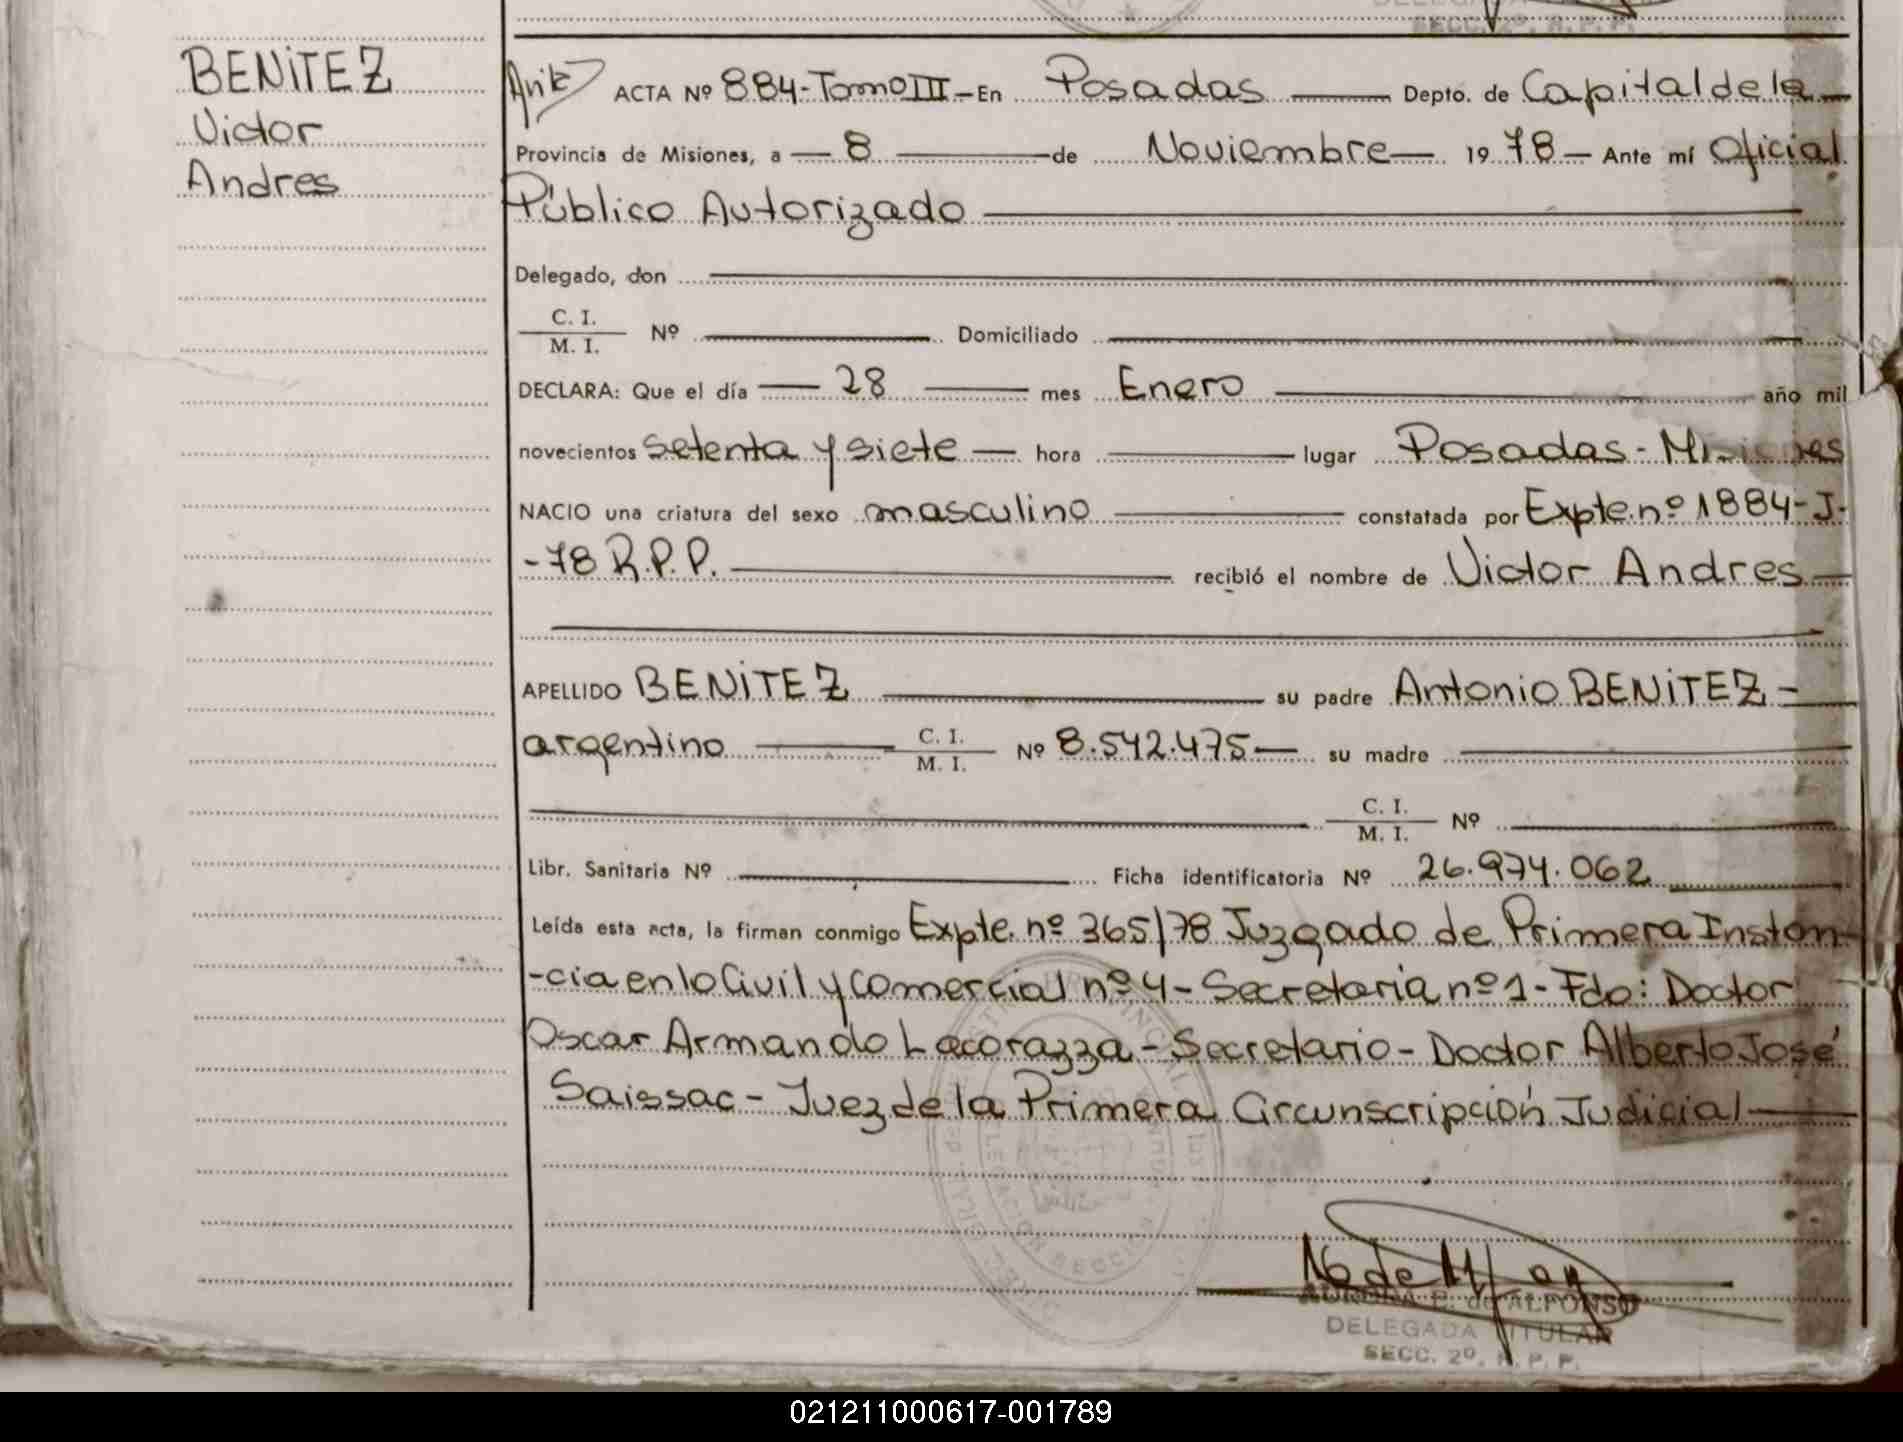 BENITEZ
Victor
Andres
ACTA Nº 884-Tomo III - En Posadas Depto. de Capital de la
Provincia de Misiones, a 8 de Noviembre 19 78 - Ante mí Oficial
Público Autorizado
Delegado, don
C. I.
M. I. Nº Domiciliado
DECLARA: Que el día 28 mes Enero año mil
novecientos setenta y siete hora lugar Posadas - Misiones
NACIO una criatura del sexo masculino constatada por Expte. nº 1884-J-
-78 R.P.P. recibió el nombre de Victor Andres
APELLIDO BENITEZ su padre Antonio BENITEZ -
argentino C. I. M. I. Nº 8.542.475 su madre
C. I.
M. I. Nº
Libr. Sanitaria Nº Ficha identificatoria Nº 26.974.062
Leída esta acta, la firman conmigo Expte. nº 365/78 Juzgado de Primera Instan-
-cia en lo Civil y Comercial nº 4 - Secretaria nº 1 - Fdo: Doctor
Oscar Armando Lacorazza - Secretario - Doctor Alberto José
Saissac - Juez de la Primera Circunscripción Judicial
AURORA de ALFONSO
DELEGADA TITULAR
SECC. 2º. R. P. P.
021211000617-001789